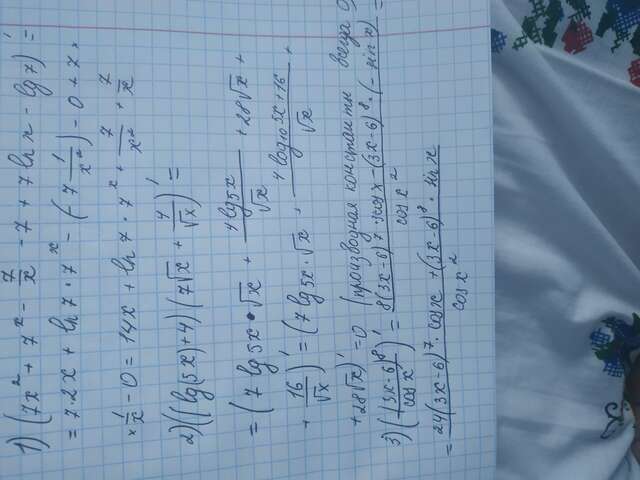 1) (7x² + 7ˣ - 7/x - 7 + 7 ln x - lg 7)' =
= 7·2x + ln 7·7ˣ - (-7 1/x²) - 0 + 7×
× 1/x - 0 = 14x + ln 7·7ˣ + 7/x² + 7/x
2) ((lg(5x)+4)(7√x + 4/√x))' =
= (7 lg 5x·√x + 4lg5x/√x + 28√x +
+ 16/√x)' = (7 lg 5x·√x + 4log₁₀5x+16/√x +
+ 28√x)' = 0 (производная константы всегда 0)
3) ((3x-6)⁸/cos x)' = 8(3x-6)⁷·3cos x - (3x-6)⁸·(-sin x)/cos x² =
= 24(3x-6)⁷·cos x + (3x-6)⁸·sin x/cos x²